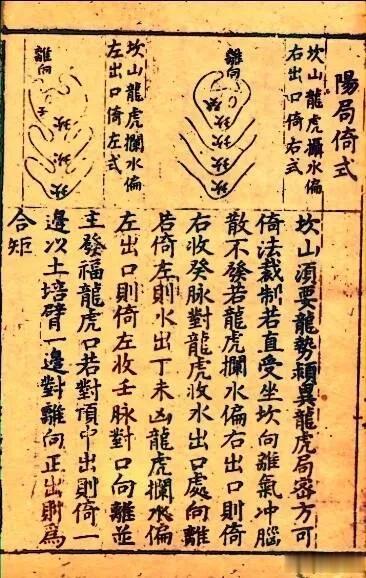 陽局倚式
坎山龍虎攔水偏
右出口倚右式
離向
癸
坎
坎
坎
坎山龍虎攔水偏
左出口倚左式
離向
壬
坎
坎
坎
坎山須要龍勢頴異龍虎局密方可
倚法裁制若直受坐坎向離氣冲腦
散不發若龍虎攔水偏右出口則倚
右收癸脉對龍虎收水出口處向離
若倚左則水出丁未凶龍虎攔水偏
左出口則倚左收壬脉對口向離並
主發福龍虎口若對頂中出則倚一
邊以土培臂一邊對離向正出則為
合矩